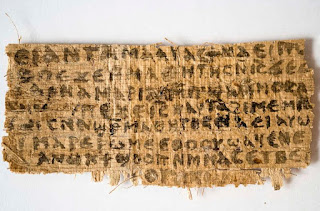 ⲉⲓ ⲁⲛ ⲧⲁⲙⲁⲁⲩ ⲁⲥϯ ⲛⲁⲉⲓ ⲡ
ⲡⲉϫⲉ ⲙⲙⲁⲑⲏⲧⲏⲥ ⲛⲓⲥ ϫⲉ
ⲁⲣⲛⲁ ⲙⲁⲣⲓⲁⲙ ⲙⲡϣⲁ ⲙⲙⲟⲥ ⲁ
ⲡⲉϫⲉ ⲓⲥ ⲛⲁⲩ ⲧⲁϩⲓⲙⲉ ⲙⲛ
ⲥⲛⲁϣⲣⲙⲁⲑⲏⲧⲏⲥ ⲛⲁⲉⲓ ⲁⲩⲱ
ⲙⲁⲣⲉⲣⲱⲙⲉ ⲉⲑⲟⲟⲩ ϣⲁϥⲉ ⲛⲉ
ⲁⲛⲟⲕ ϯϣⲟⲟⲡ ⲛⲙⲙⲁⲥ ⲉⲧⲃⲉ